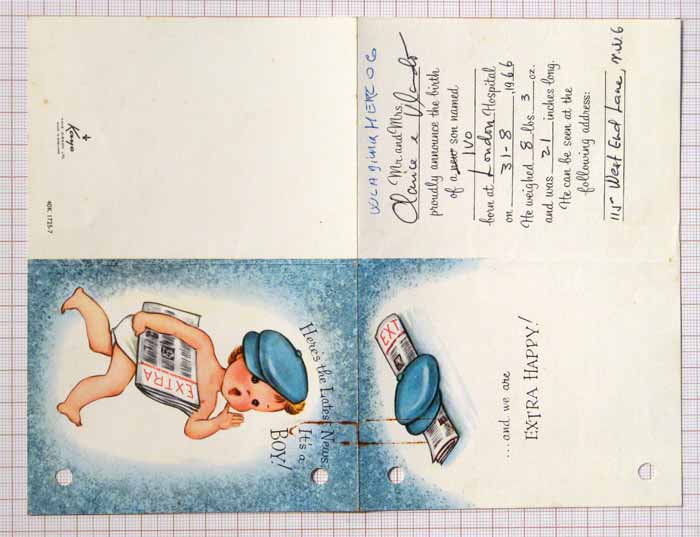 WLADIMIR HERZOG
Mr. and Mrs.
Clarice e Vlado
proudly announce the birth
of a new son named
IVO
born at London Hospital
on 31-8, 1966
He weighed 8 lbs. 3 oz.
and was 21 inches long.
He can be seen at the
following address:
115 West End Lane, N.W.6
Here's the Latest News
It's a
BOY!
EXTRA
EXT
...and we are
EXTRA HAPPY!